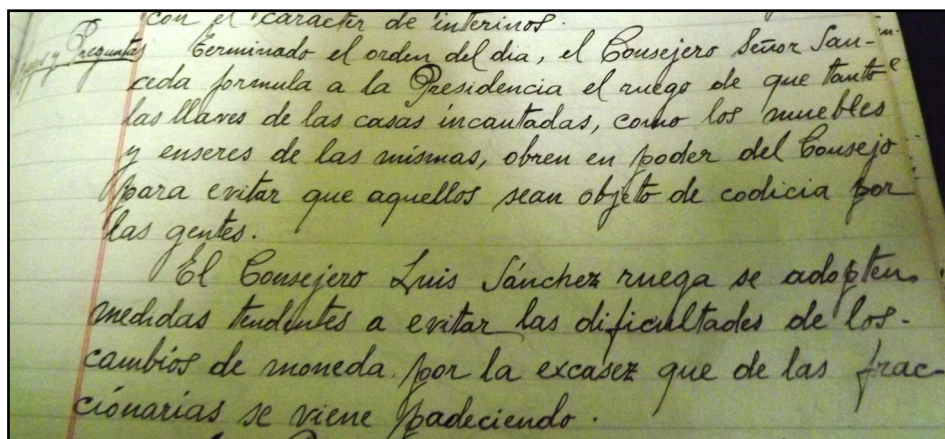 con el caracter de interinos.
y Preguntas
Terminado el orden del dia, el Consejero Señor San-
ceda formula a la Presidencia el ruego de que tanto
las llaves de las casas incautadas, como los muebles
y enseres de las mismas, obren en poder del Consejo
para evitar que aquellos sean objeto de codicia por
las gentes.
El Consejero Luis Sánchez ruega se adopten
medidas tendentes a evitar las dificultades de los
cambios de moneda por la excasez que de las frac-
cionarias se viene padeciendo.